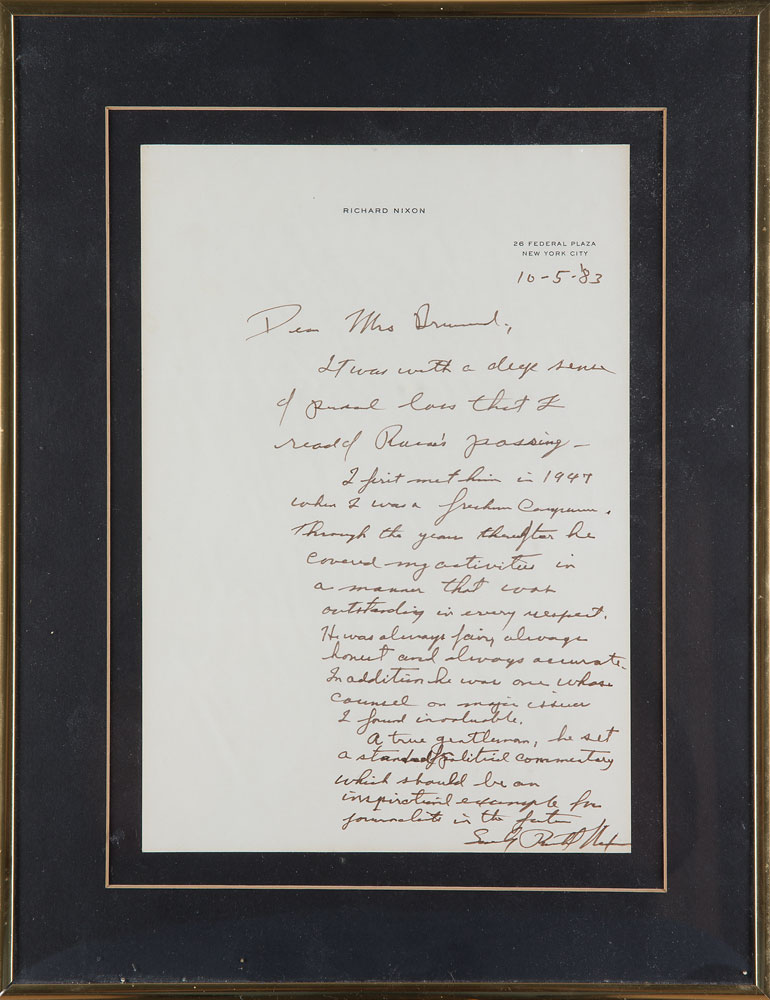 RICHARD NIXON
26 FEDERAL PLAZA
NEW YORK CITY
10-5-'83
Dear Mrs
It was with a deep sense
of personal loss that I
read of passing —
I first met him in 1947
when I was a freshman Congressman.
Through the years thereafter he
covered my activities in
a manner that was
outstanding in every respect.
He was always fair, always
honest and always accurate.
In addition he was one whose
counsel on major issues
I found invaluable.
A true gentleman, he set
a standard of political commentary
which should be an
inspirational example for
journalists in the future
Sincerely Richard Nixon